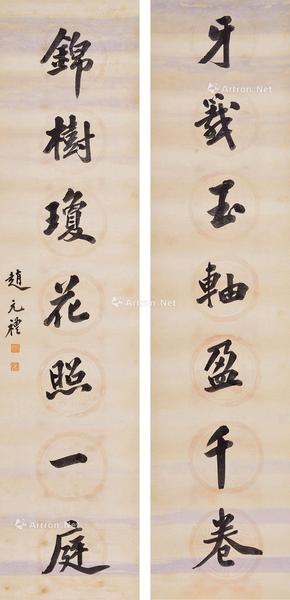 牙籤玉軸盈千卷
錦樹瓊花照一庭
趙元禮
Artron.Net
Artron.Net
Artron.Net